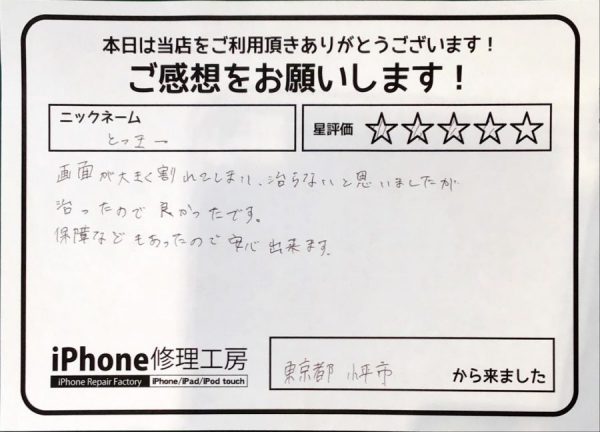 本日は当店をご利用頂きありがとうございます！
ご感想をお願いします！
ニックネーム
とっきー
星評価 ☆☆☆☆☆
画面が大きく割れてしまい、治らないと思いましたが
治ったので良かったです。
保障などもあったので安心出来ます。
iPhone修理工房
iPhone Repair Factory iPhone/iPad/iPod touch
東京都 小平市 から来ました